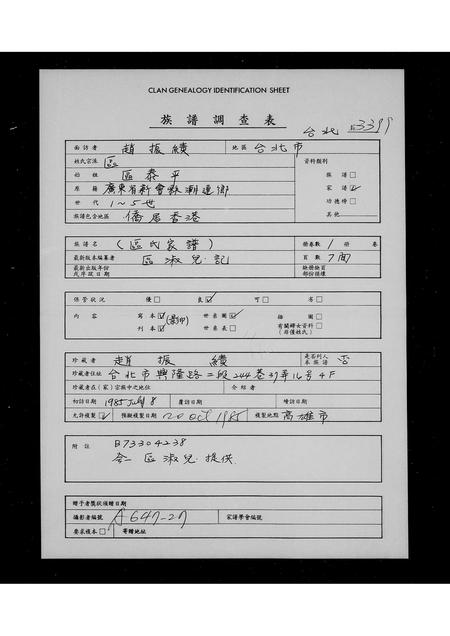 CLAN GENEALOGY IDENTIFICATION SHEET
族譜調查表
台北 3399
面訪者 趙振績 地區 台北市
姓氏宗派 區 資料類別
始祖 區泰平 族譜 □
原籍 廣東省新會縣潮連鄉 家譜 ☑
世代 1~5世 功德榜 □
族譜包含地區 僑居香港 其他
族譜名 (區氏家譜) 冊卷數 1 冊 卷
最新版本編纂者 區淑兒記 頁數 7
最新出版年份
保管狀況 優□ 良☑ 可□ 劣□
內容 寫本☑ (影印) 世系圖☑ 插圖□
刊本□ 世系表□ 有關婦女資料□
(非僅姓氏)
珍藏者 趙振績 是否列入本族譜 否
珍藏者住址 台北市興隆路二段244巷37弄16号4F
珍藏者在(家)宗族中之地位 介紹者
初訪日期 1985 July 8 覆訪日期 續訪日期
允許複製☑ 預擬複製日期 20 Oct 1985 複製地點 高雄市
附註 B73304238
區淑兒提供
贈予者獎狀頒贈日期
攝影者編號 A647-27 家譜學會編號
要求複本□ 寄贈地址